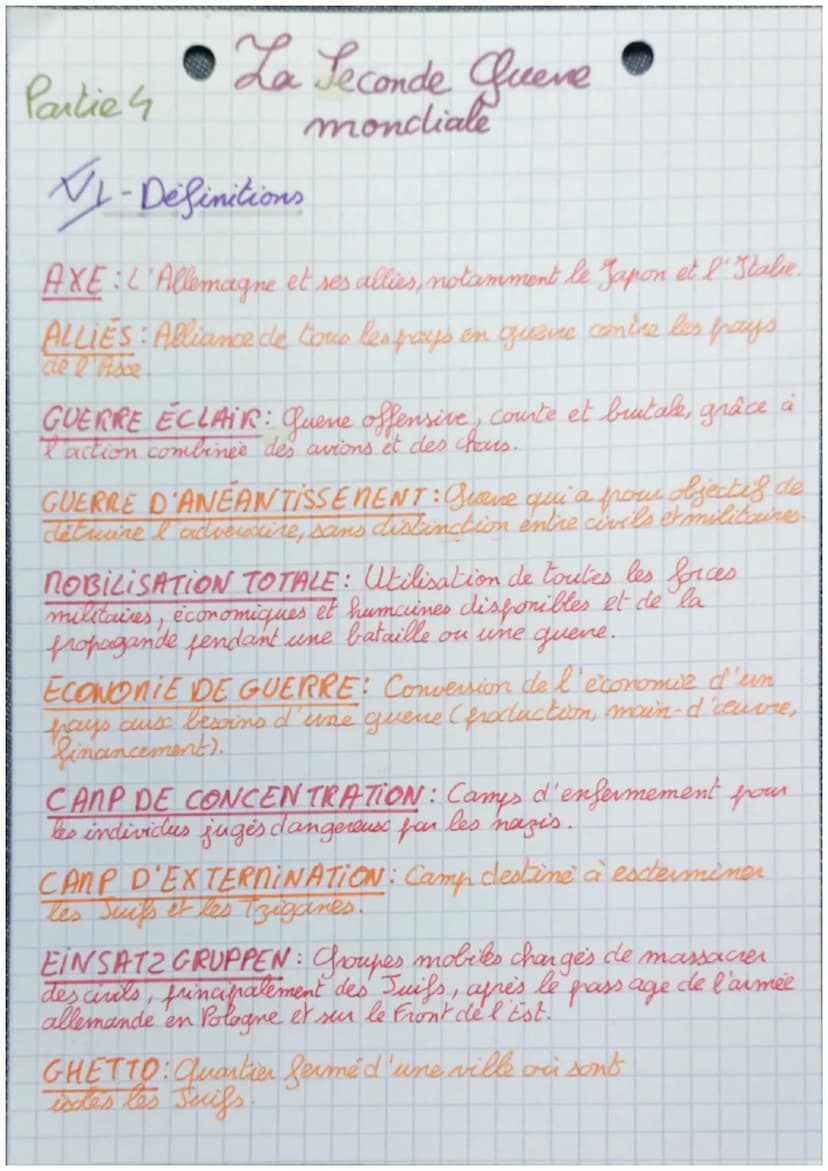 La Seconde Guerre
Partie 4
mondiale
VI - Définitions
AXE : L'Allemagne et ses alliés, notamment le Japon et l'Italie.
ALLIÉS : Alliance de tous les pays en guerre contre les pays
de l'Axe.
GUERRE ÉCLAIR : Guerre offensive, courte et brutale, grâce à
l'action combinée des avions et des chars.
GUERRE D'ANÉANTISSEMENT : Guerre qui a pour objectif de
détruire l'adversaire, sans distinction entre civils et militaires.
MOBILISATION TOTALE : Utilisation de toutes les forces
militaires, économiques et humaines disponibles et de la
propagande pendant une bataille ou une guerre.
ÉCONOMIE DE GUERRE : Conversion de l'économie d'un
pays aux besoins d'une guerre (production, main-d'œuvre,
financement).
CAMP DE CONCENTRATION : Camps d'enfermement pour
les individus jugés dangereux par les nazis.
CAMP D'EXTERMINATION : Camp destiné à exterminer
les Juifs et les Tziganes.
EINSATZGRUPPEN : Groupes mobiles chargés de massacrer
des civils, principalement des Juifs, après le passage de l'armée
allemande en Pologne et sur le Front de l'Est.
GHETTO : Quartier fermé d'une ville où sont
isolés les Juifs.